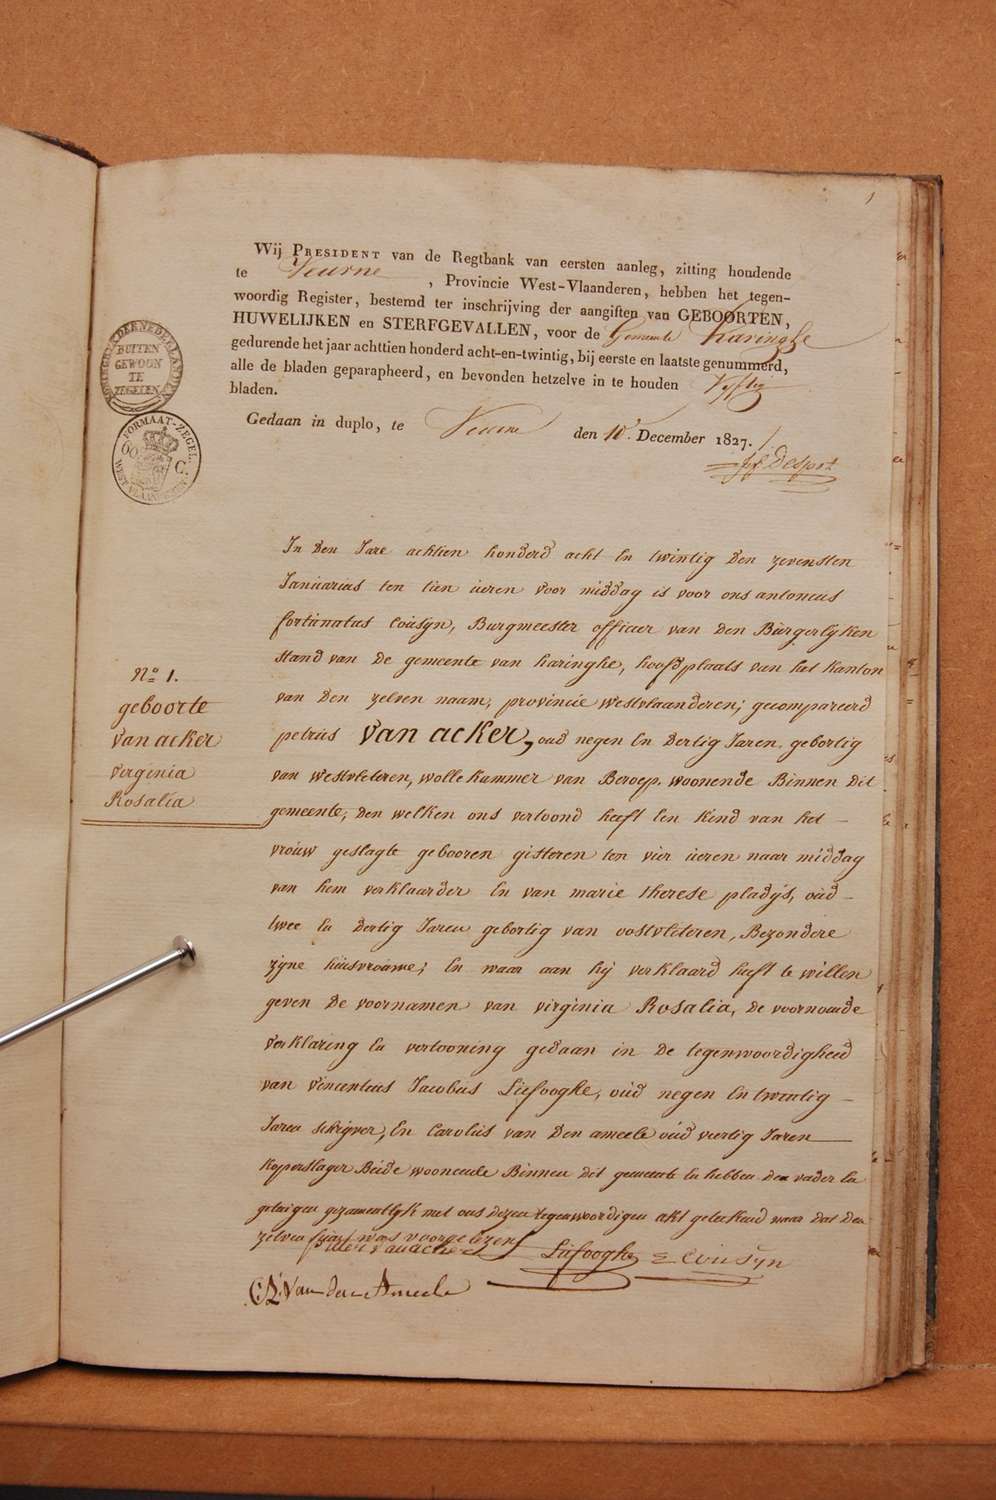 1
Wij PRESIDENT van de Regtbank van eersten aanleg, zitting houdende
te Veurne, Provincie West-Vlaanderen, hebben het tegen-
woordig Register, bestemd ter inschrijving der aangiften van GEBOORTEN,
HUWELIJKEN en STERFGEVALLEN, voor de Gemeente Haringhe
gedurende het jaar achttien honderd acht-en-twintig, bij eerste en laatste genummerd,
alle de bladen geparapheerd, en bevonden hetzelve in te houden Vyftig
bladen.
Gedaan in duplo, te Veurne den 10 December 1827.
BUITEN
GEWOON
TE
ZEGELEN
FORMAAT-ZEGEL
60 C.
WEST-VLAANDEREN
In den Jare achtien honderd acht en twintig den zevensten
Januarius ten tien ueren voor middag is voor ons antonius
fortunatus Cousyn, Burgmeester officier van den Burgerlyken
stand van de gemeente van haringhe, hoofdplaats van het kanton
van den zelven naam, provincie westvlaanderen; gecompareerd
petrus Van acker, oud negen en dertig Jaren, gebortig
van westvleteren, wollekammer van Beroep, woonende Binnen dit
gemeente, den welken ons vertoond heeft een kind van het
vrouw geslagte gebooren gisteren ten vier ueren naar middag
van hem verklaarder en van marie therese pladys, oud
twee en dertig Jaren gebortig van oostvleteren, Bezondere
zyne huisvrouwe; en waar aan hy verklaard heeft te willen
geven de voornamen van virginia Rosalia, de voornoemde
verklaring en vertooning gedaan in de tegenwoordigheid
van vincentius Jacobus Liefooghe, oud negen en twintig
Jaren schryver, en Carolus van den ameele oud veertig Jaren
koperslager Beide woonende Binnen dit gemeente en hebben den vader en
getuigen gezamentlyk met ons dezen tegenwoordigen akt geteekend naar dat den
zelven was voorgelezen
Liefooghe Cousyn
Van den Ameele
N° 1.
geboorte
Van acker
virginia
Rosalia